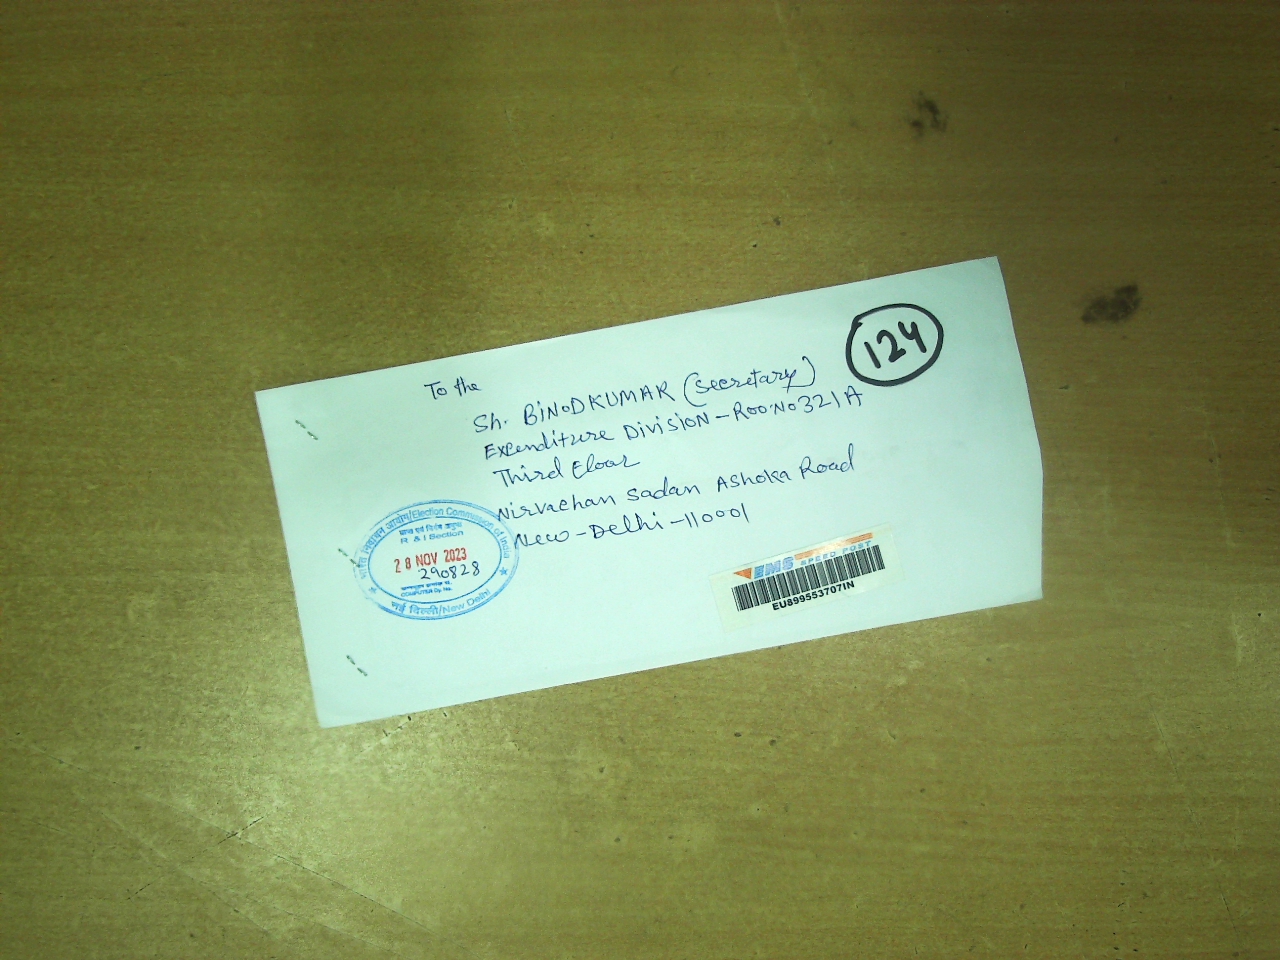 To the
Sh. BiNODKUMAR (Secretary)
Expenditure DiVISION - Roo.No 321A
Third Eloor
Nirvachan Sadan Ashoka Road
New-Delhi-110001
124
भारत निर्वाचन आयोग/Election Commission of India
R & I Section
28 NOV 2023
290828
COMPUTER Dy. No.
नई दिल्ली/New Delhi
EMS SPEED POST
EU899553707IN